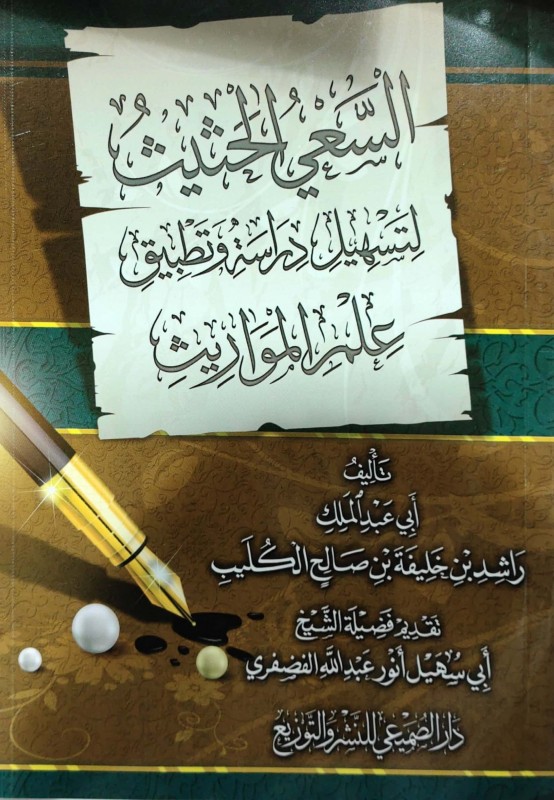 السَّعْيُ الحَثِيثُ
لِتَسْهِيلِ دِرَاسَةِ وَتَطْبِيقِ
عِلْمِ المَوَارِيثِ
تَأْلِيفُ
أَبِي عَبْدِ المَلِكِ
رَاشِدِ بْنِ خَلِيفَةَ بْنِ صَالِحٍ الكُلَيبِ
تَقْدِيمُ فَضِيلَةِ الشَّيْخِ
أَبِي سُهَيْلٍ أَنْوَر عَبْدِ اللهِ الفَضْفَرِي
دَارُ الصُّمَيْعِي لِلنَّشْرِ وَالتَّوْزِيعِ